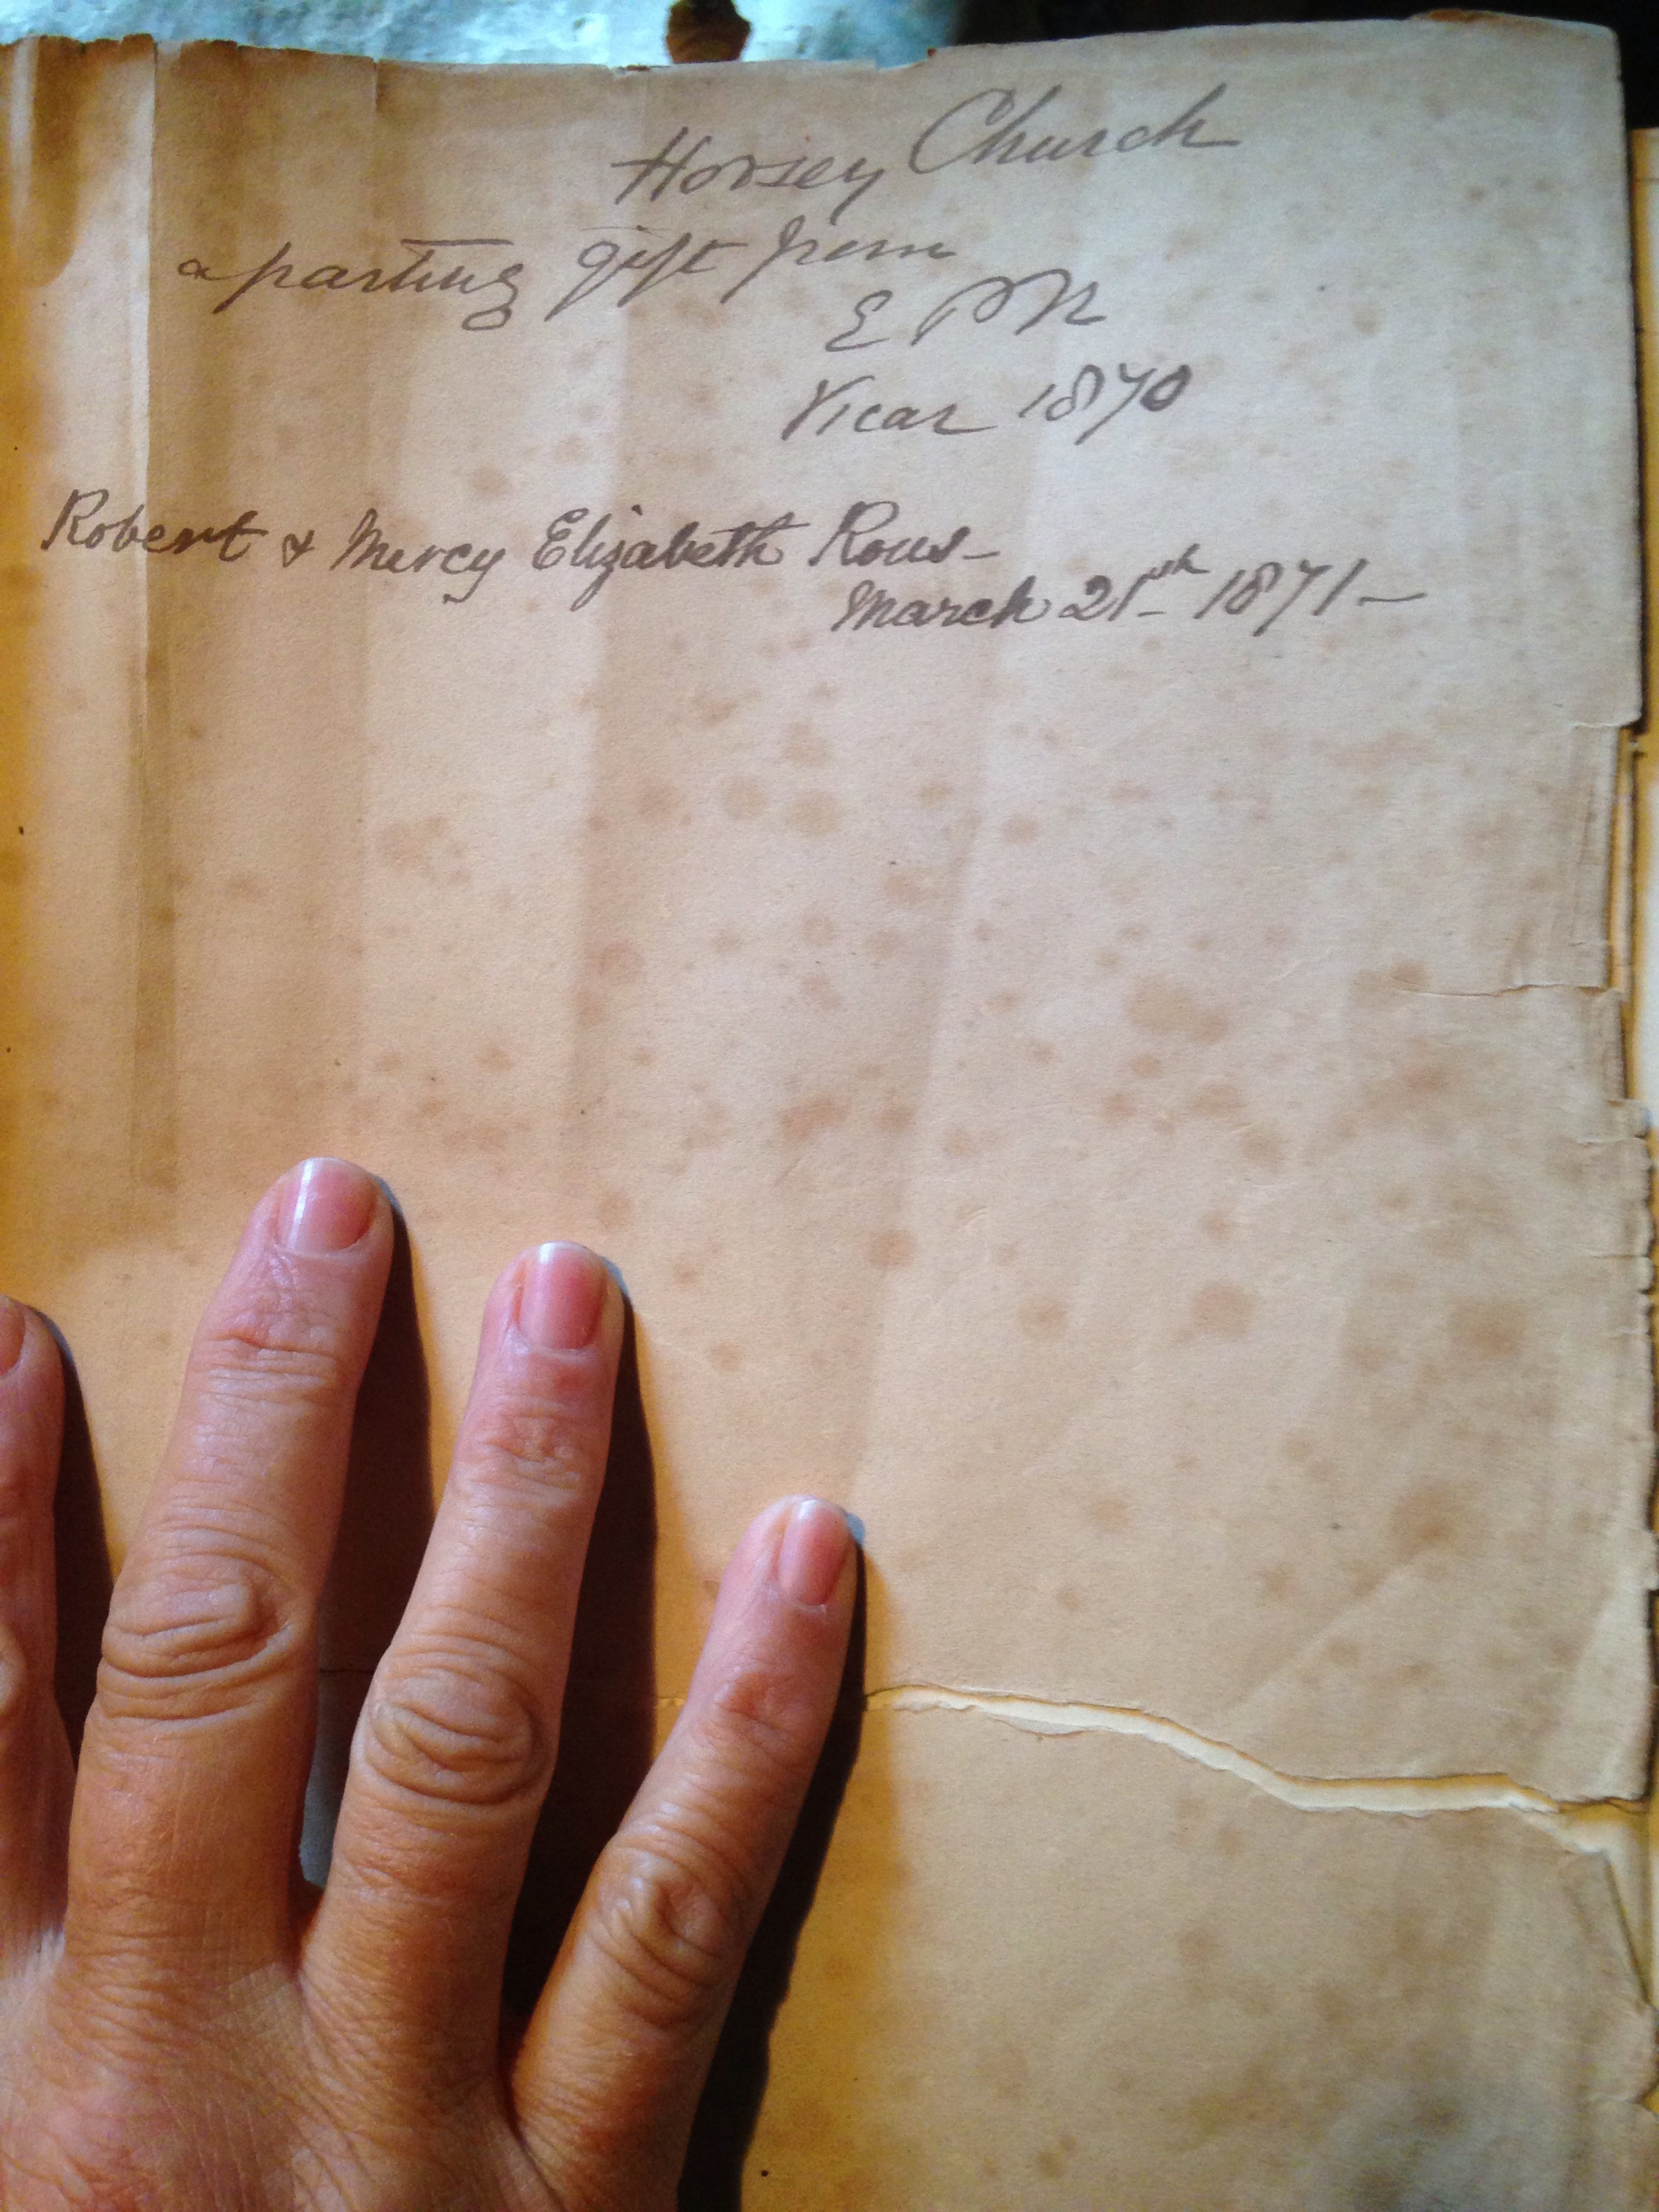 Horsey Church
a parting gift from
E P N
Vicar 1870
Robert & Mercy Elizabeth Rous
March 21th 1871